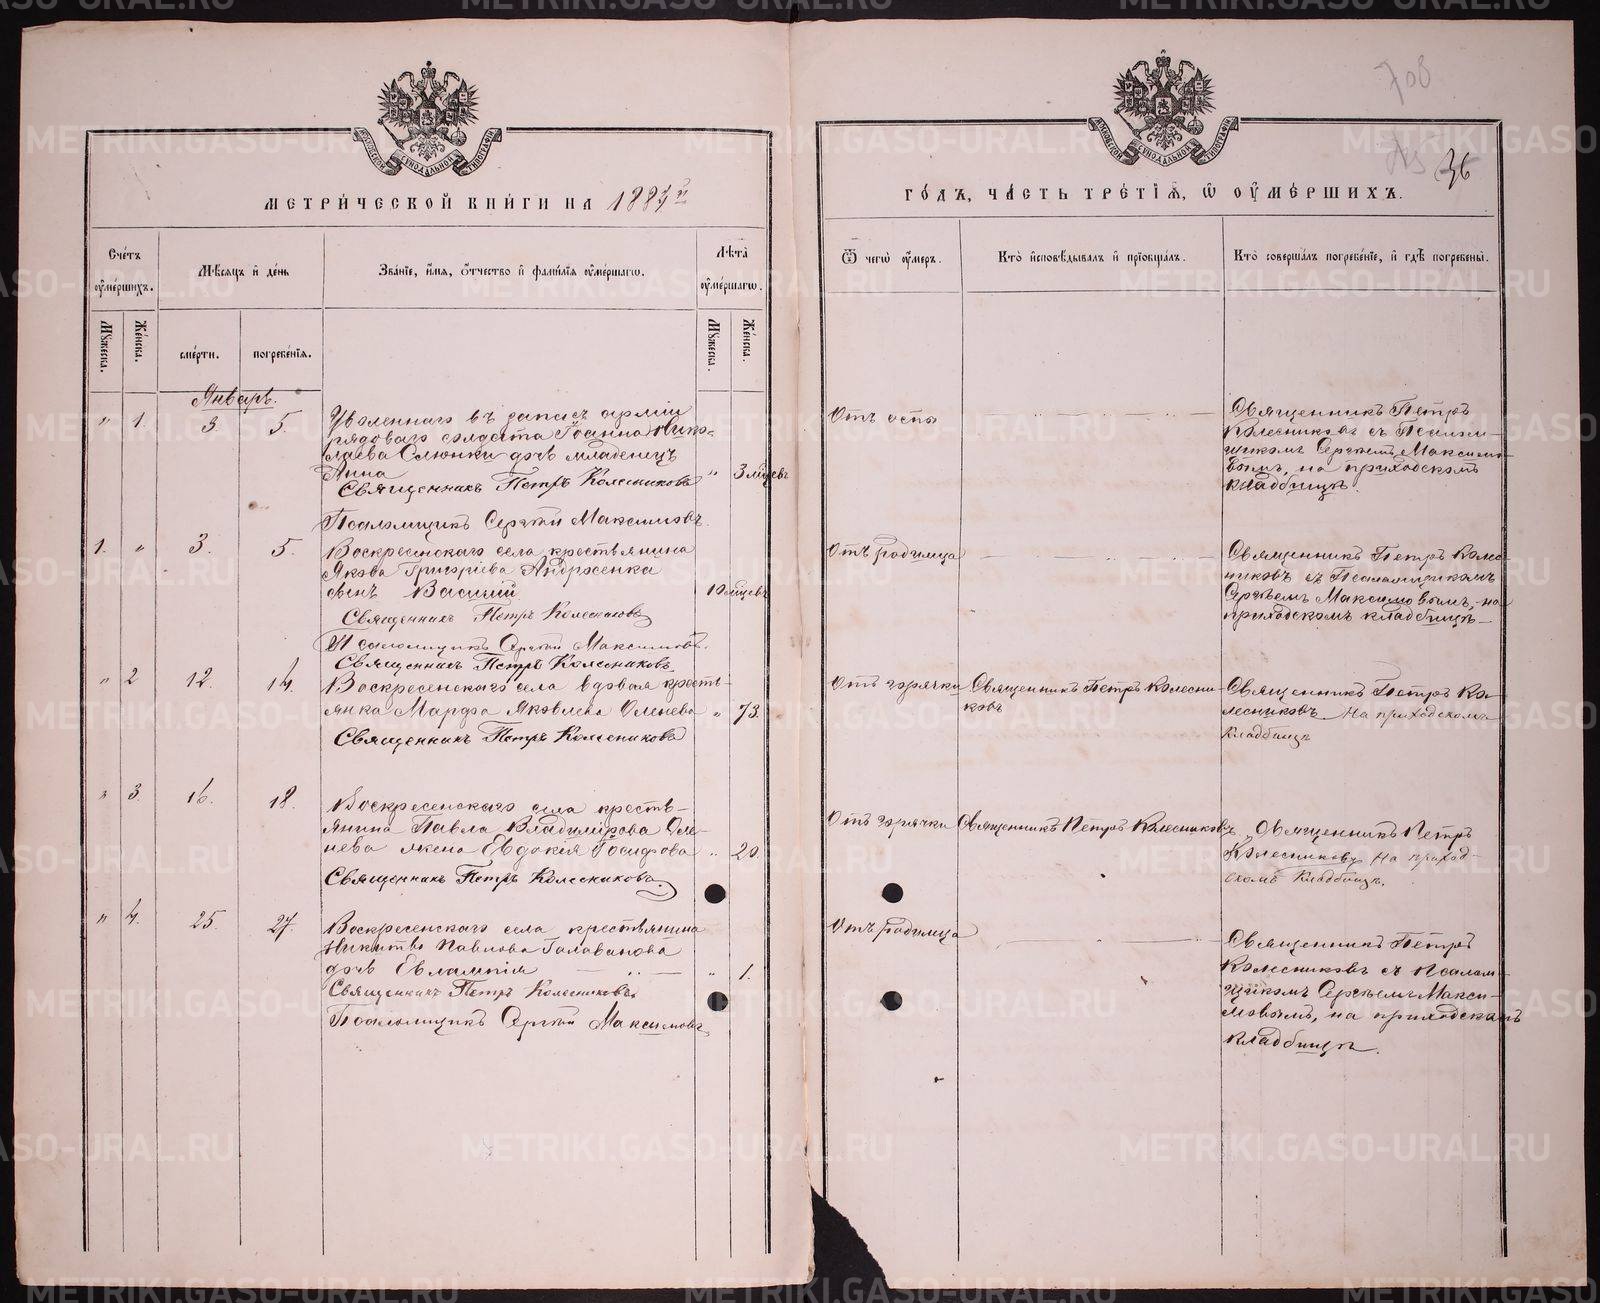 МОСКОВСКОЙ СѴНОДАЛЬНОЙ ТИПОГРАФІИ
МЕТРИ́ЧЕСКОЙ КНИ́ГИ НА 188
Сче́тъ ᲂу҆ме́ршихъ.
Мꙋжеска.
Же́нска.
Мѣ́сѧцъ и҆ де́нь
сме́рти.
погребе́нїѧ.
Зва́нїе, и҆́мѧ, ѻ҆́тчество и҆ фами́лїѧ ᲂу҆ме́ршагѡ.
Лѣ́та ᲂу҆ме́ршагѡ.
Мꙋжеска.
Же́нска.
Январь.
" 1. 3. 5.
Уволеннаго въ запасъ арміи
рядоваго солдата Іоанна Нико-
лаева Слюнки дочь младенецъ
Анна " 3 мѣсцевъ
Священникъ Петръ Колесниковъ
Псаломщикъ Сергѣй Максимовъ.
1. " 3. 5.
Воскресенскаго села крестьянина
Якова Григоріева Андросенка
сынъ Василій 10 мѣсцевъ
Священникъ Петръ Колесниковъ
Псаломщикъ Сергѣй Максимовъ.
Священникъ Петръ Колесниковъ
" 2 12. 14.
Воскресенскаго села вдовая кресть-
янка Марфа Яковлева Оленева " 73.
Священникъ Петръ Колесниковъ
" 3. 16. 18.
Воскресенскаго села кресть-
янина Павла Владимірова Оле-
нева жена Евдокія Іосифова " 20.
Священникъ Петръ Колесниковъ.
" 4. 25. 27.
Воскресенскаго села крестьянина
Никиты Павлова Галаванова
дочь Евлампія — " — " 1.
Священникъ Петръ Колесниковъ.
Псаломщикъ Сергѣй Максимовъ
708
36
МОСКОВСКОЙ СѴНОДАЛЬНОЙ ТИПОГРАФІИ
ГО́ДЪ, ЧА́СТЬ ТРЕ́ТЇѦ, Ѡ҆ ᲂУ҆МЕ́РШИХЪ.
Ѿ чегѡ̀ ᲂу҆́меръ.
Кто̀ и҆сповѣ́дывалъ и҆ прїѡбща́лъ.
Кто̀ соверша́лъ погребе́нїе, и҆ гдѣ̀ погребены̀.
Отъ оспы
Священникъ Петръ
Колесниковъ съ Псалом-
щикомъ Сергѣемъ Максимо-
вымъ, на приходскомъ
кладбищѣ.
Отъ родимца
Священникъ Петръ Колес-
никовъ съ Псаломщикомъ
Сергѣемъ Максимовымъ, на
приходскомъ кладбищѣ.
Отъ горячки
Священникъ Петръ Колесни-
ковъ
Священникъ Петръ Ко-
лесниковъ. На приходскомъ
кладбищѣ
Отъ горячки
Священникъ Петръ Колесниковъ
Священникъ Петръ
Колесниковъ На приход-
скомъ кладбищѣ.
Отъ родимца
Священникъ Петръ
Колесниковъ съ Псалом-
щикомъ Сергѣемъ Макси-
мовымъ, на приходскомъ
кладбищѣ.
METRIKI.GASO-URAL.RU